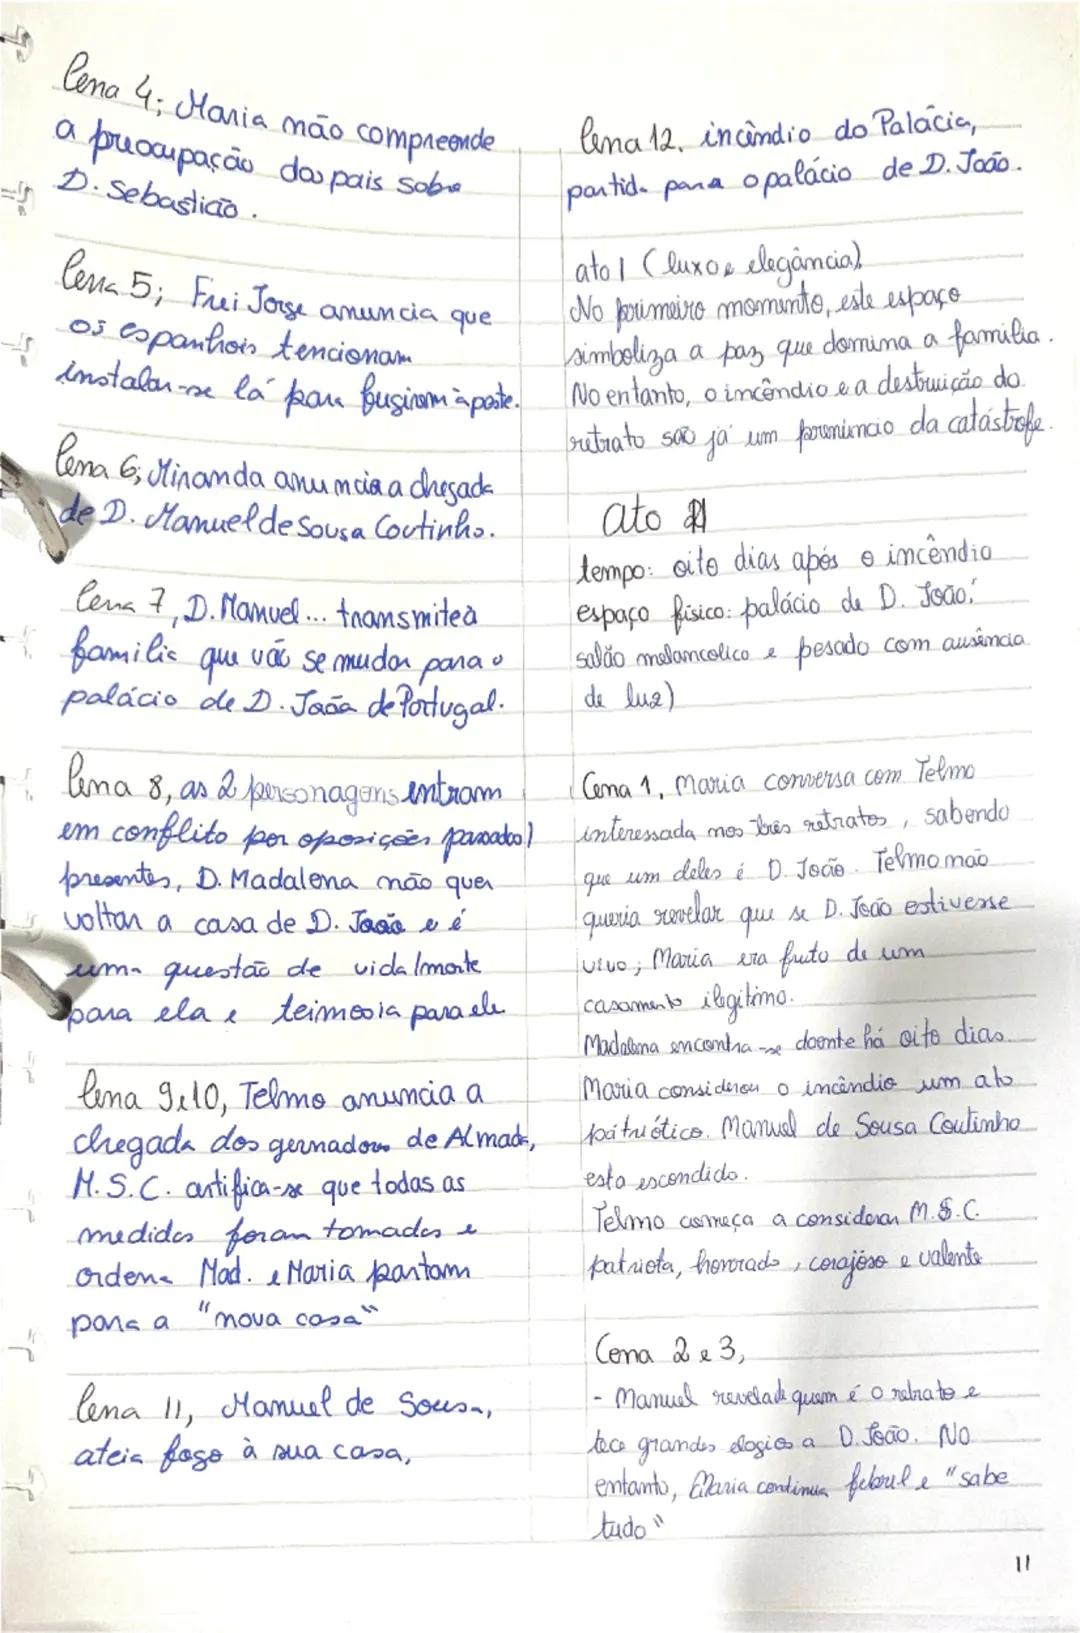 Cena 4; Maria não compreende
a preocupação dos pais sobre
D. Sebastião.
Cena 5; Frei Jorge anuncia que
os espanhois tencionam
instalar-se lá para fugirem à peste.
Cena 6; Miranda anuncia a chegada
de D. Manuel de Sousa Coutinho.
Cena 7, D. Manuel... transmite à
familia que vão se mudar para o
palácio de D. João de Portugal.
Cena 8, as 2 personagens entram
em conflito por oposições passado/
presentes, D. Madalena não quer
voltar a casa de D. João e é
uma questão de vida/morte
para ela e teimosia para ele
Cena 9 e 10, Telmo anuncia a
chegada dos gernadores de Almada,
M.S.C. artifica-se que todas as
medidas foram tomadas e
ordena Mad. e Maria partam
para a "nova casa"
Cena 11, Manuel de Sousa,
ateia fogo à sua casa,
Cena 12, incêndio do Palácia,
partida para o palácio de D. João.
ato I (luxo e elegância)
No primeiro momento, este espaço
simboliza a paz que domina a família.
No entanto, o incêndio e a destruição do
retrato são já um prenúncio da catástrofe.
ato II
tempo: oito dias após o incêndio
espaço físico: palácio de D. João;
salão melancolico e pesado com ausência
de luz)
Cena 1, Maria conversa com Telmo
interessada nos três retratos, sabendo
que um deles é D. João. Telmo não
queria revelar que se D. João estivesse
vivo; Maria era fruto de um
casamento ilegitimo.
Madalena encontra-se doente há oito dias.
Maria considerou o incêndio um ato
patriótico. Manuel de Sousa Coutinho
esta escondido.
Telmo começa a considerar M.S.C.
patriota, honrado, corajoso e valente
Cena 2 e 3,
- Manuel revelade quem é o retrato e
tece grandes elogios a D. João. No
entanto, Maria continua febril e "sabe
tudo"
11